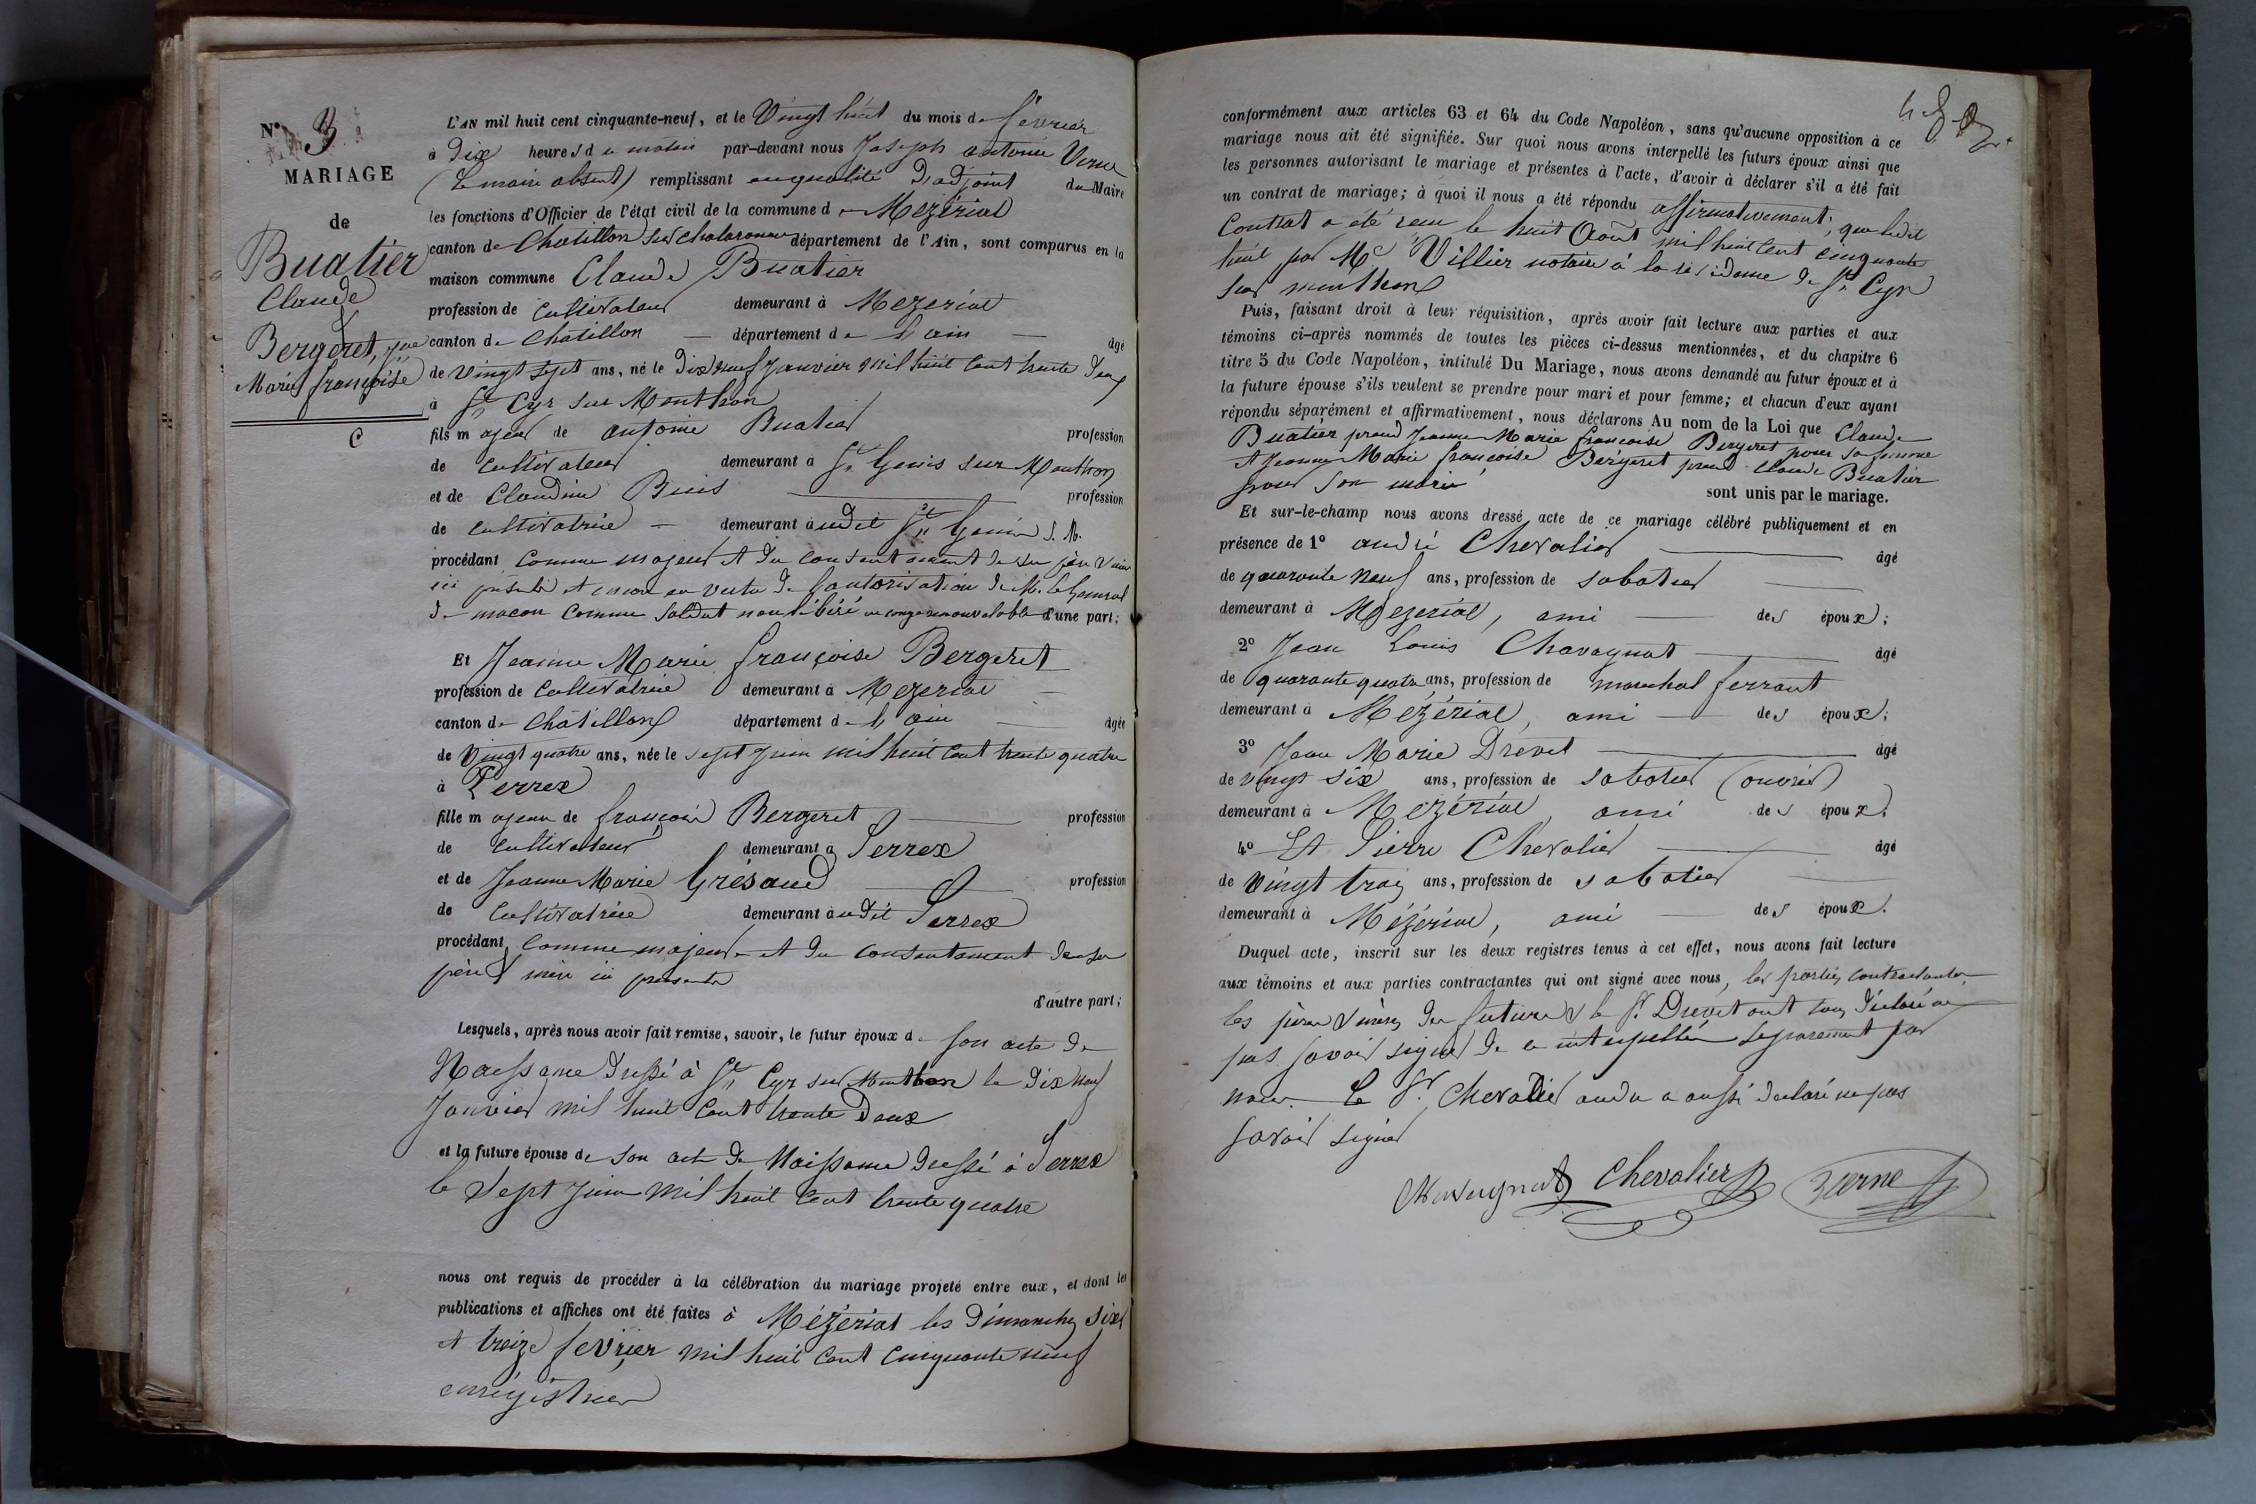 N° 3
MARIAGE
de
Buatier
Claude
&
Bergeret, Jne
Marie françoise
C
L'AN mil huit cent cinquante-neuf, et le Vingt huit du mois de février
à Dix heures du matin par-devant nous Joseph antoine Verne
(le maire absent) remplissant en qualité D'adjoint du Maire
les fonctions d'Officier de l'état civil de la commune de Mézériat
canton de Chatillon sur chalaronne département de l'Ain, sont comparus en la
maison commune Claude Buatier
profession de Cultivateur demeurant à Mézériat
canton de Châtillon département de l'ain âgé
de vingt sept ans, né le Dix neuf Janvier mil huit Cent trente Deux
à St Cyr sur Menthon
fils majeur de antoine Buatier profession
de Cultivateur demeurant à St Genis sur Menthon
et de Claudine Buis profession
de cultivatrice demeurant audit St Genis S. M.
procédant Comme majeur et du consentement de ses père & mère
ici présents et encore en vertu de l'autorisation de M. le Général
de macon comme soldat non libéré en congé renouvelable d'une part;
Et Jeanne Marie françoise Bergeret
profession de Cultivatrice demeurant à Mézériat
canton de Châtillon département de l'ain âgée
de Vingt quatre ans, née le sept Juin mil huit Cent trente quatre
à Perrex
fille majeure de françois Bergeret profession
de Cultivateur demeurant à Perrex
et de Jeanne Marie Grésaud profession
de Cultivatrice demeurant audit Perrex
procédant Comme majeure et du consentement de ses
père & mère ici présents
d'autre part;
Lesquels, après nous avoir fait remise, savoir, le futur époux de son acte de
Naissance Dressé à St Cyr sur Menthon le Dix neuf
Janvier mil huit Cent trente Deux
et la future épouse de son acte de Naissance Dressé à Perrex
le Sept Juin mil huit Cent trente quatre
nous ont requis de procéder à la célébration du mariage projeté entre eux, et dont les
publications et affiches ont été faites à Mézériat les Dimanches Six
et treize février mil huit Cent Cinquante neuf
conformément aux articles 63 et 64 du Code Napoléon, sans qu'aucune opposition à ce
mariage nous ait été signifiée. Sur quoi nous avons interpellé les futurs époux ainsi que
les personnes autorisant le mariage et présentes à l'acte, d'avoir à déclarer s'il a été fait
un contrat de mariage; à quoi il nous a été répondu affirmativement, que ledit
Contrat a été reçu le huit Août mil huit Cent cinquante
huit par Me Villier notaire à la résidence de St Cyr
sur menthon
Puis, faisant droit à leur réquisition, après avoir fait lecture aux parties et aux
témoins ci-après nommés de toutes les pièces ci-dessus mentionnées, et du chapitre 6
titre 5 du Code Napoléon, intitulé Du Mariage, nous avons demandé au futur époux et à
la future épouse s'ils veulent se prendre pour mari et pour femme; et chacun d'eux ayant
répondu séparément et affirmativement, nous déclarons Au nom de la Loi que Claude
Buatier prend Jeanne Marie françoise Bergeret pour sa femme
et Jeanne Marie françoise Bergeret prend Claude Buatier
pour son mari
sont unis par le mariage.
Et sur-le-champ nous avons dressé acte de ce mariage célébré publiquement et en
présence de 1° andré Chevalier âgé
de quarante neuf ans, profession de sabotier
demeurant à Mézériat, ami des époux;
2° Jean Louis Chavagnat âgé
de quarante quatre ans, profession de maréchal ferrant
demeurant à Mézériat, ami des époux;
3° Jean Marie Drevet âgé
de vingt six ans, profession de sabotier (ouvrier)
demeurant à Mézériat, ami des époux;
4° Et Pierre Chevalier âgé
de Vingt trois ans, profession de sabotier
demeurant à Mézériat, ami des époux.
Duquel acte, inscrit sur les deux registres tenus à cet effet, nous avons fait lecture
aux témoins et aux parties contractantes qui ont signé avec nous, les parties contractantes
les pères & mères des futurs & le Sr Drevet ont tous déclaré ne
pas savoir signer de ce interpellés séparément par
nous. Le Sr Chevalier andré a aussi déclaré ne pas
savoir signer
Chavagnat Chevalier Verne